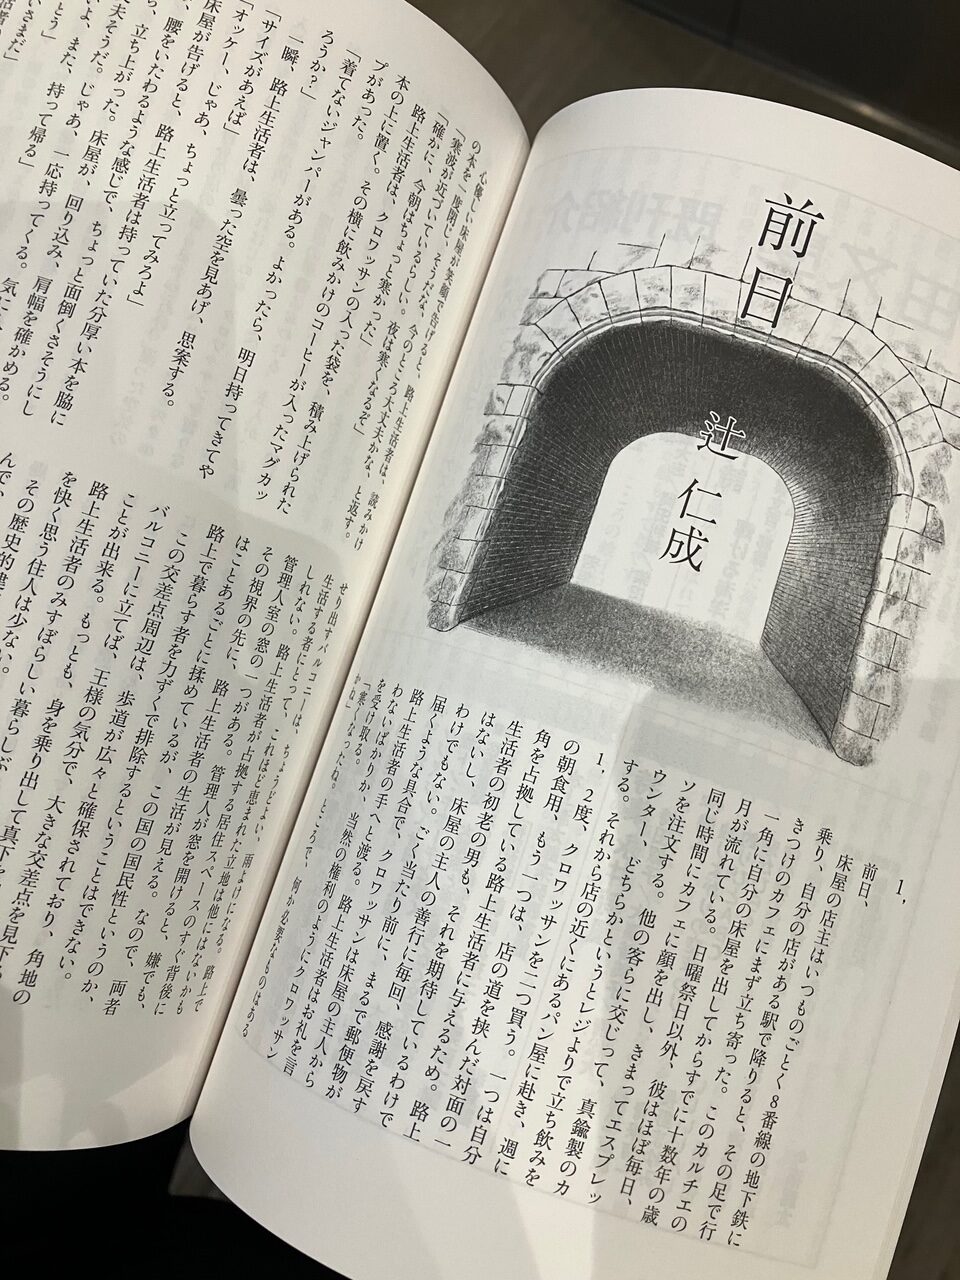 前日
辻 仁成
1,
前日、
床屋の店主はいつものごとく8番線の地下鉄に
乗り、自分の店がある駅で降りると、その足で行
きつけのカフェにまず立ち寄った。このカルチエの
一角に自分の床屋を出してからすでに十数年の歳
月が流れている。日曜祭日以外、彼はほぼ毎日、
同じ時間にカフェに顔を出し、きまってエスプレッ
ソを注文する。他の客らに交じって、真鍮製のカ
ウンター、どちらかというとレジよりで立ち飲みを
する。それから店の近くにあるパン屋に赴き、週に
1，2度、クロワッサンを二つ買う。一つは自分
の朝食用、もう一つは、店の道を挟んだ対面の一
角を占拠している路上生活者に与えるため。路上
生活者の初老の男も、それを期待しているわけで
はないし、床屋の主人の善行に毎回、感謝を戻す
わけでもない。ごく当たり前に、まるで郵便物が
届くような具合で、クロワッサンは床屋の主人から
路上生活者の手へと渡る。路上生活者はお礼を言
わないばかりか、当然の権利のようにクロワッサン
を受け取る。
「寒くなったね。ところで、何か必要なものはある
かね」
心優しい床屋が笑顔で告げると、路上生活者は、読みかけ
の本を一度閉じ、そうだな、今のところ大丈夫かな、と返す。
「寒波が近づいているらしい。夜は寒くなるぞ」
「確かに、今朝はちょっと寒かった」
路上生活者は、クロワッサンの入った袋を、積み上げられた
本の上に置く。その横に飲みかけのコーヒーが入ったマグカッ
プがあった。
「着てないジャンパーがある。よかったら、明日持ってきてや
ろうか？」
一瞬、路上生活者は、曇った空を見あげ、思案する。
「サイズがあえば」
「オッケー、じゃあ、ちょっと立ってみろよ」
床屋が告げると、路上生活者は持っていた分厚い本を脇に
、腰をいたわるような感じで、ちょっと面倒くさそうにし
ら、立ち上がった。床屋が、回り込み、肩幅を確かめる。
夫そうだ。じゃあ、一応持ってくる。気に
いよ、また、持って帰る」
とう」
いさまだ」
せり出すバルコニーは、ちょうどよい、雨よけになる。路上で
生活する者にとって、これほど恵まれた立地は他にはないかも
しれない。路上生活者が占拠する居住スペースのすぐ背後に
管理人室の窓の一つがある。管理人が窓を開けると、嫌でも、
その視界の先に、路上生活者の生活が見える。なので、両者
はことあるごとに揉めているが、この国の国民性というのか、
路上で暮らす者を力ずくで排除するということはできない。
この交差点周辺は、歩道が広々と確保されており、角地の
バルコニーに立てば、王様の気分で、大きな交差点を見下ろ
ことが出来る。もっとも、身を乗り出して真下を
路上生活者のみすぼらしい暮らしぶ
を快く思う住人は少ない。
その歴史的建
んで、